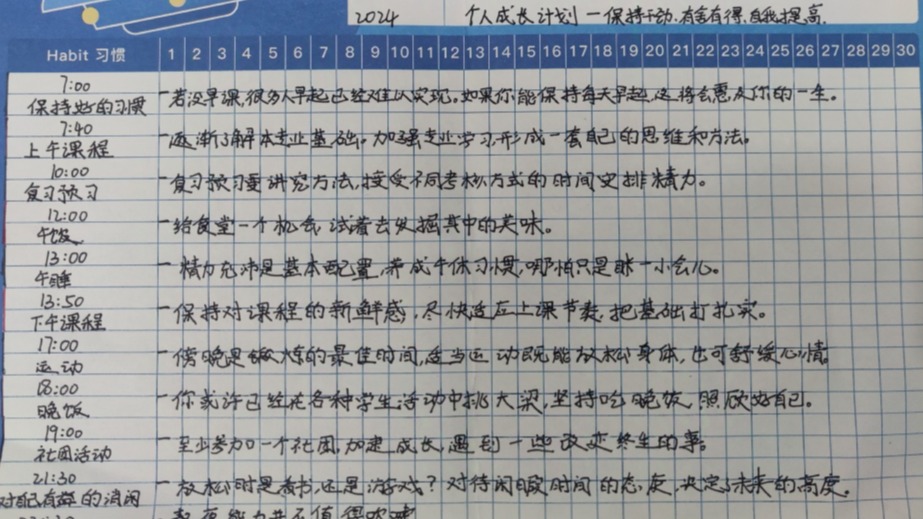 2024 个人成长计划 — 保持干劲.有舍有得.自我提高.
Habit 习惯 1 2 3 4 5 6 7 8 9 10 11 12 13 14 15 16 17 18 19 20 21 22 23 24 25 26 27 28 29 30
7:00
保持好的习惯 - 若没早课,很多人早起已经难以实现。如果你能保持每天早起,这将会惠及你的一生。
7:40
上午课程 - 逐渐了解本专业基础。加强专业学习,形成一套自己的思维和方法。
10:00
复习预习 - 复习预习要讲究方法,接受不同考核方式的时间安排精力。
12:00
午饭 - 给食堂一个机会,试着去发掘其中的美味。
13:00
午睡 - 精力充沛是基本配置,养成午休习惯,哪怕只是眯一小会儿。
13:50
下午课程 - 保持对课程的新鲜感,尽快适应上课节奏,把基础打扎实。
17:00
运动 - 傍晚是锻炼的最佳时间,适当运动既能放松身体,也可舒缓心情。
18:00
晚饭 - 你或许已经在各种学生活动中挑大梁,坚持吃晚饭,照顾好自己。
19:00
社团活动 - 至少参加一个社团,加速成长,遇到一些改变终生的事。
21:30
对自己有益的消闲 - 放松时是看书,还是游戏?对待闲暇时间的态度,决定了未来的高度。
熬夜能力并不值得吹嘘